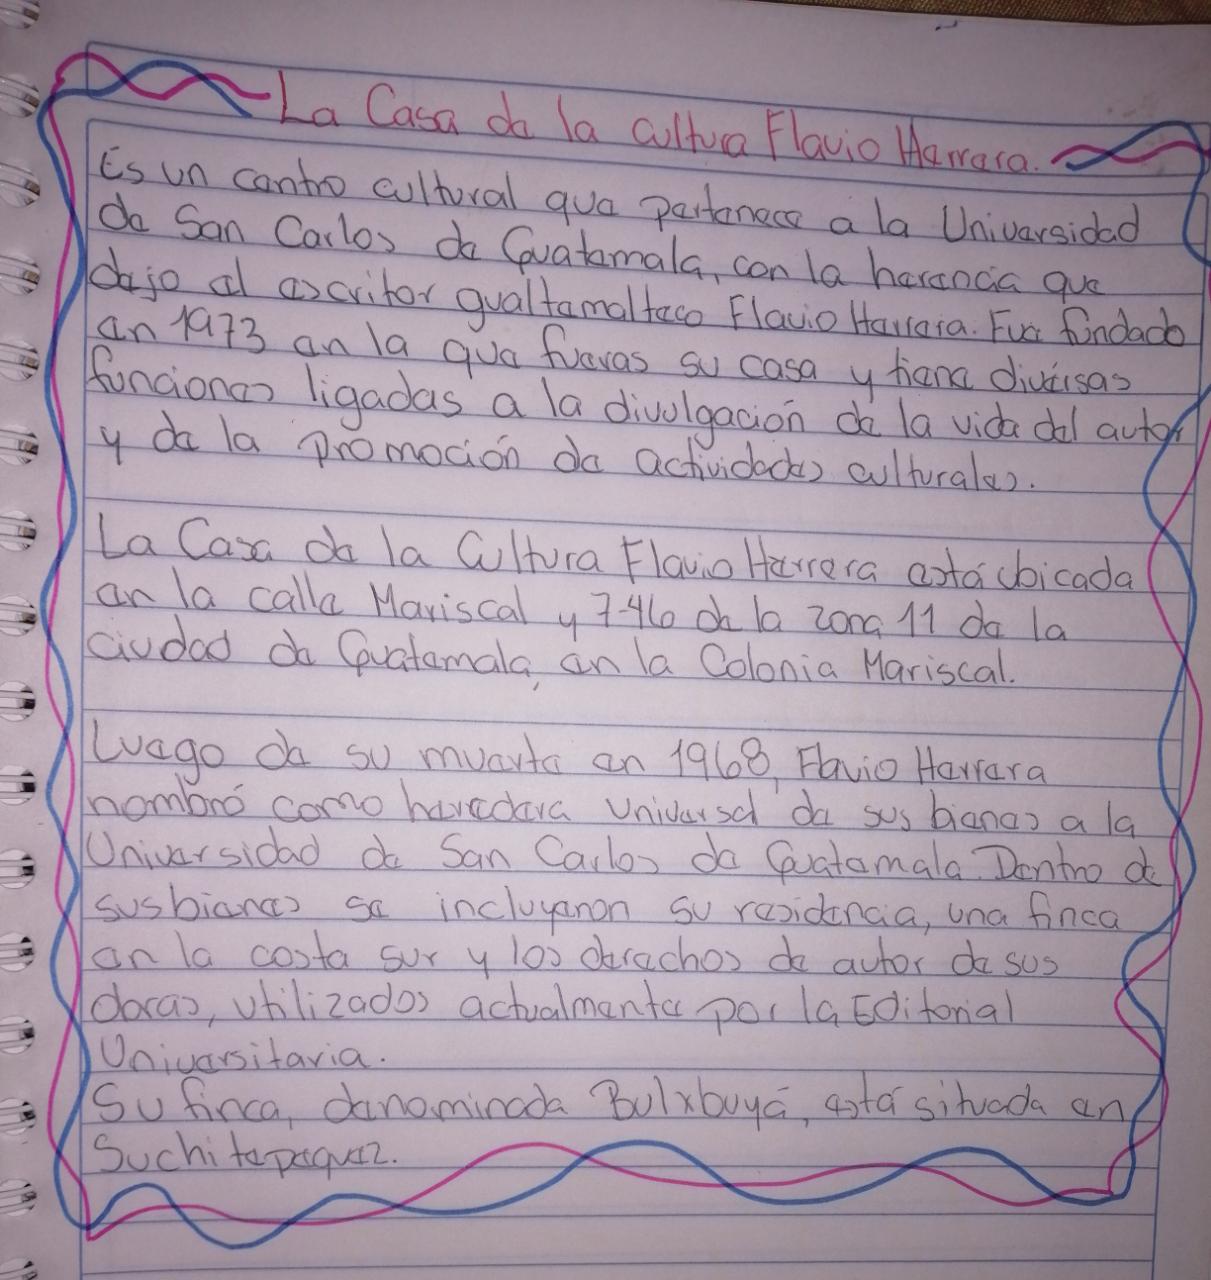 La Casa de la Cultura Flavio Herrera.
Es un centro cultural que pertenece a la Universidad
de San Carlos de Guatemala, con la herencia que
dejo el escritor gualtemalteco Flavio Herrera. Fue fundado
en 1973 en la que fueras su casa y tiene diversas
funciones ligadas a la divulgación de la vida del autor
y de la promoción de actividades culturales.
La Casa de la Cultura Flavio Herrera está ubicada
en la calle Mariscal y 7-46 de la zona 11 de la
ciudad de Guatemala, en la Colonia Mariscal.
Luego de su muerte en 1968, Flavio Herrera
nombró como heredera universal de sus bienes a la
Universidad de San Carlos de Guatemala. Dentro de
sus bienes se incluyeron su residencia, una finca
en la costa sur y los derechos de autor de sus
obras, utilizados actualmente por la Editorial
Universitaria.
Su finca, denominada Bulxbuyá, está situada en
Suchitepequez.